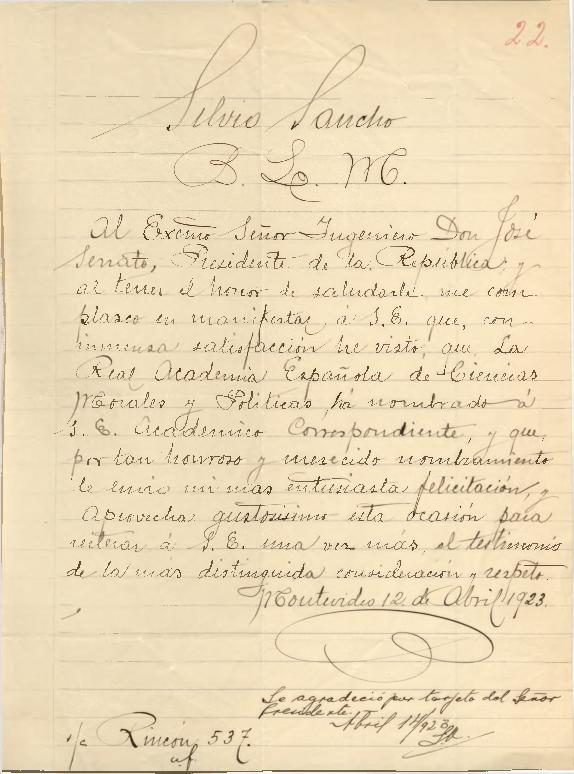 22.
Silvio Sancho
B. L. M.
Al Excmo Señor Ingeniero Don José
Serrato, Presidente de la Republica y
al tener el honor de saludarle me com
plasco en manifestar á S.E. que, con
inmensa satisfacción he visto, que La
Real Academia Española de Ciencias
Morales y Políticas, há nombrado á
S. E. Academico Correspondiente, y que,
por tan honroso y merecido nombramiento
le envio mi mas entusiasta felicitación, y
aprovecha gustosisimo esta ocasión para
reiterar á S. E. una vez más, el testimonio
de la más distinguida consideración y respeto.
Montevideo 12 de Abril 1923.
Se agradeció por tarjeta del Señor
Presidente.
Abril 14/923
s/c Rincón 537.